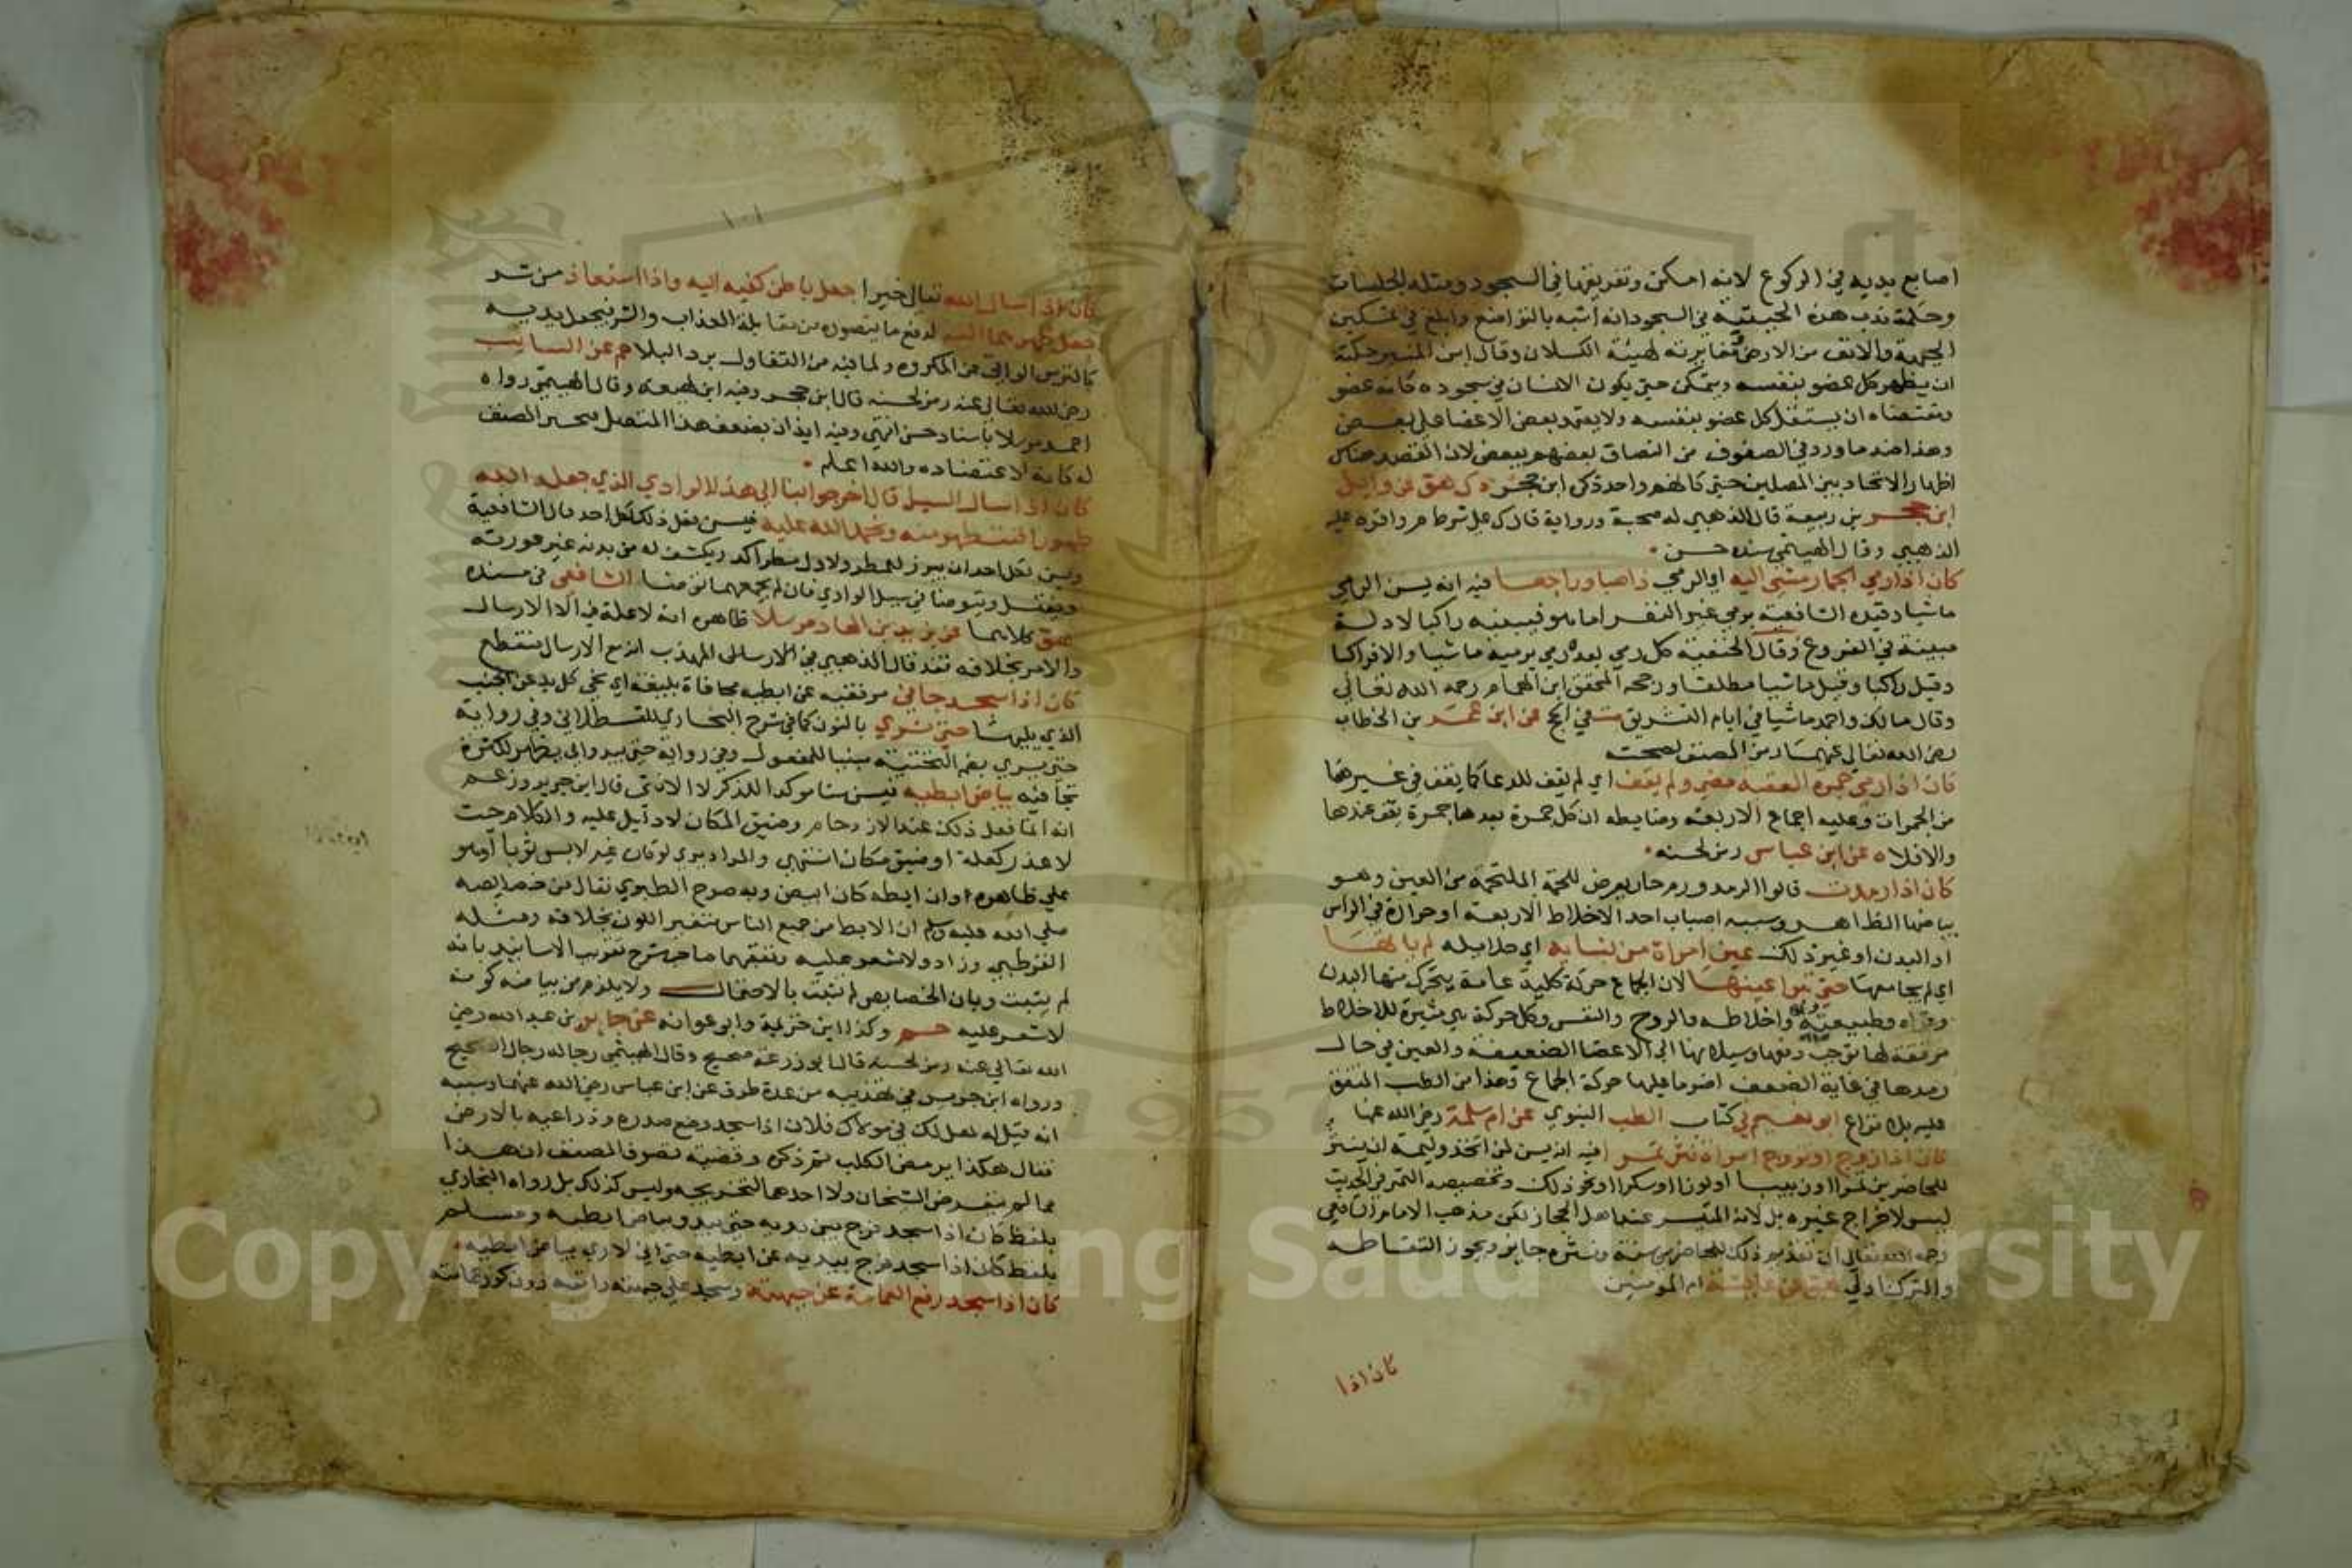 اصابع يديه في الركوع لانه امكن وتفريقها في السجود ومثله الجلسات
وحكمة ندب هذه الهيئة في السجود انه اشبه بالتواضع وابلغ في تمكين
الجبهة والانف من الارض ومغايرته لهيئة الكسلان وقال ابن المنير حكمته
ان يظهر كل عضو بنفسه ويتمكن حتى يكون الانسان في سجوده كانه عضو
ومقتضاه ان يستقل كل عضو بنفسه ولا يعتمد بعض الاعضا على بعض
وهذا ضد ما ورد في الصفوف من التصاق بعضهم ببعض لان القصد هناك
اظهار الاتحاد بين المصلين حتى كانهم واحد ذكره ابن حجر ك هق عن وايل
ابن حجر بن ربيعة قال الذهبي له صحبة ورواية قال ك على شرط م واقره عليه
الذهبي وقال الهيتمي سنده حسن
كان اذا رمي الجمار مشي اليه اي الرمي ذاهبا وراجعا فيه انه يسن الرمي
ماشيا وقيده الشافعية برمي غير النفر اما هو فيسنه راكبا لادلة
مبينة في الفروع وقال الحنفية كل رمي بعده رمي يرميه ماشيا والا فراكبا
وقيل راكبا وقيل ماشيا مطلقا ورجحه المحقق ابن الهمام رحمه الله تعالي
وقال مالك واحمد ماشيا في ايام التشريق ت في الحج عن ابن عمر بن الخطاب
رضي الله تعالى عنهما رمز المصنف لصحته
كان اذا رمي جمرة العقبة مضي ولم يقف اي لم يقف للدعا كما يقف في غيرها
من الجمرات وعليه اجماع الاربعة وضابطه ان كل جمرة بعدها جمرة يقف عندها
والا فلا ه عن ابن عباس رمز لحسنه
كان اذا رمدت قالوا الرمد ورم حار يعرض للحمة الملتحمة من العين وهو
بياضها الظاهر وسببه انصباب احد الاخلاط الاربعة او حرارة في الراس
او البدن او غير ذلك عين امراة من نسايه اي حلايله لم ياتها
اي لم يجامعها حتى تبرا عينها لان الجماع حركة كلية عامة يتحرك منها البدن
وقواه وطبيعته واخلاطه والروح والنفس وكل حركة هي مثيرة للاخلاط
مرققة لها توجب دفعها وسيلانها الي الاعضا الضعيفة والعين في حال
رمدها في غاية الضعف اضر ما عليها حركة الجماع وهذا من الطب المتفق
عليه بلا نزاع ابو نعيم في كتاب الطب النبوي عن ام سلمة رضي الله عنها
كان اذا زوج او تزوج امراة نثر تمرا فيه انه يسن لمن اتخذ وليمة ان ينثر
للحاضرين تمرا او زبيبا او لوزا او سكرا او نحو ذلك وتخصيصه التمر في الحديث
ليس لاخراج غيره بل لانه المتيسر عند اهل الحجاز لكن مذهب الامام الشافعي
رحمه الله تعالي ان تقديم ذلك للحاضرين سنة ونثره جايز ويجوز التقاطه
والترك اولي هق عن عايشة ام المومنين
كان اذا
١٠١
كان اذا سال الله تعالى خيرا جعل باطن كفيه اليه واذا استعاذ من شر
جعل ظهرهما اليه لدفع ما يتصوره من مقابلة العذاب والشر فيجعل يديه
كالترس الواقي عن المكروه ولما فيه من التفاول برد البلا حم عن السايب
رضي الله تعالى عنه رمز لحسنه قال ابن حجر وفيه ابن لهيعة وقال الهيتمي رواه
احمد مرسلا باسناد حسن انتهي وفيه ايذان بضعف هذا المتصل
له كانه لاعتضاده والله اعلم
كان اذا سال السيل قال اخرجوا بنا الى هذا الوادي الذي جعله الله
طهورا فنتطهر منه ونحمد الله عليه فيسن فعل ذلك لكل احد قال الشافعية
ويسن لكل احد ان يبرز للمطر ولاول مطر اكد ويكشف له من بدنه غير عورته
ويغتسل ويتوضا في سيل الوادي فان لم يجمعهما توضا الشافعي في مسنده
هق كلاهما عن يزيد بن الهاد مرسلا ظاهره انه لا علة فيه الا الارسال
والامر بخلافه فقد قال الذهبي في المهذب انه مع الارسال منقطع
كان اذا سجد جافي مرفقيه عن ابطيه مجافاة بليغة اي نحى كل يد عن الجنب
الذي يليها حتى نري بالنون كما في شرح البخاري للقسطلاني وفي رواية
حتى يري بضم التحتية مبنيا للمفعول وفي رواية حتى يبدو اي يظهر لكثرة
تجافيه بياض ابطيه فيسن سنا موكدا للذكر لا الانثى قال ابن جرير وزعم
انه انما فعل ذلك عند الازدحام وضيق المكان لا دليل عليه والكلام حيث
لا عذر كعلة او ضيق مكان انتهي والمراد يري لو كان غير لابس ثوبا او هو
علي ظاهره وان ابطه كان ابيض وبه صرح الطبري فقال من خصايصه
صلي الله عليه وسلم ان الابط من جميع الناس متغير اللون بخلافه ومثله
القرطبي وزاد ولا شعر عليه وتعقبهما صاحب شرح تقريب الاسانيد بانه
لم يثبت وبان الخصايص لم تثبت بالاحتمال ولا يلزم من بياضه كونه
لا شعر عليه حم وكذا ابن خزيمة وابو عوانة عن جابر بن عبد الله رضي
الله تعالى عنه رمز لحسنه قال ابو زرعة صحيح وقال الهيتمي رجاله رجال الصحيح
ورواه ابن جرير في تهذيبه من عدة طرق عن ابن عباس رضي الله عنهما وسببه
انه قيل له هل لك في مولاك فلان اذا سجد وضع صدره وذراعيه بالارض
فقال هكذا يربض الكلب ثم ذكره وقضية تصرف المصنف ان هذا
مما لم يتعرض الشيخان ولا احدهما لتخريجه وليس كذلك بل رواه البخاري
بلفظ كان اذا سجد فرج بين يديه حتى يبدو بياض ابطيه ومسلم
بلفظ كان اذا سجد فرج بيديه عن ابطيه حتى اني لاري بياض ابطيه
كان اذا سجد رفع العمامة عن جبهته وسجد علي جبهته وانفه دون كور عمامته
Copyright © King Saud University
1957